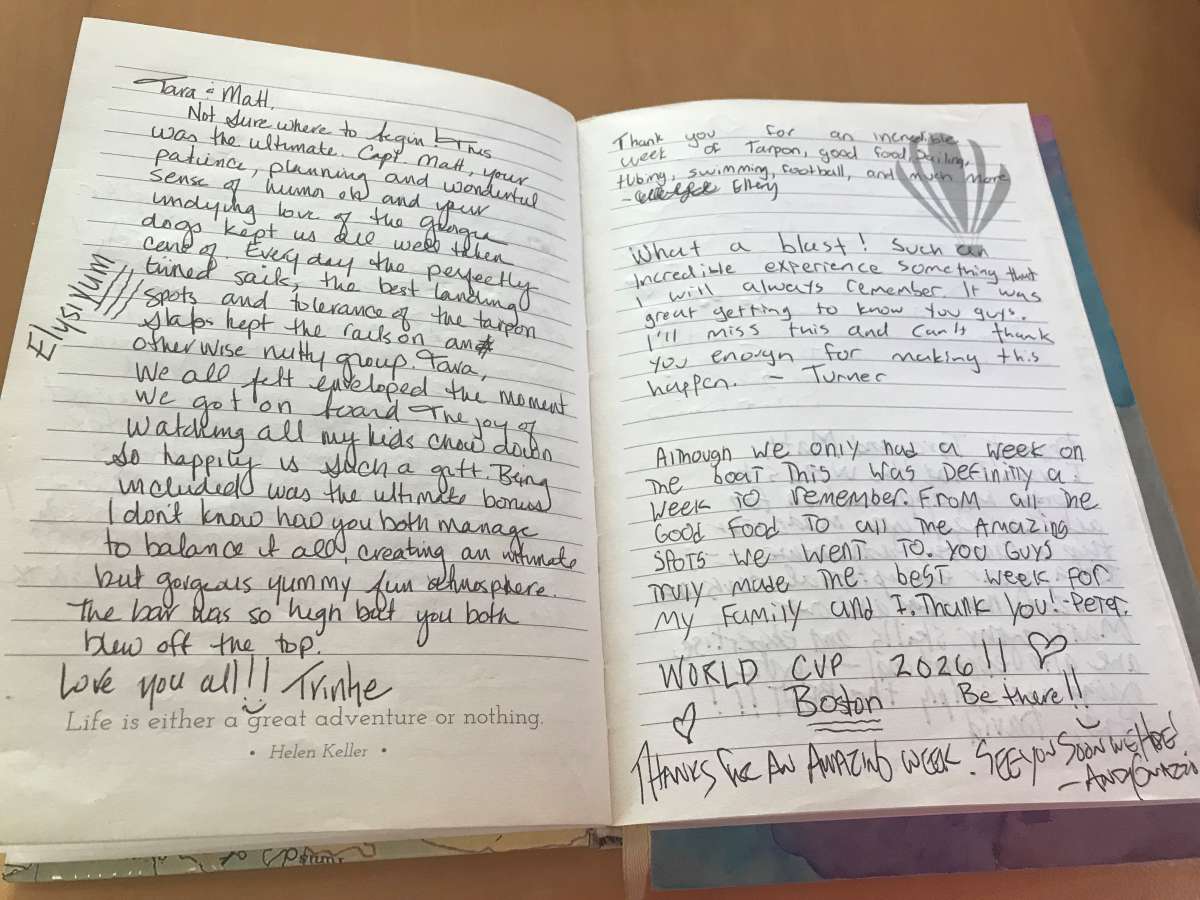 Tara & Matt.
Not sure where to begin! This
was the ultimate. Capt. Matt, your
patience, planning and wonderful
sense of humor and your
undying love of the
dogs kept us all well taken
care of. Every day the perfectly
tuned sails, the best landing
spots and tolerance of the tarpon
slabs kept the rails on an
otherwise nutty group. Tara,
We all felt enveloped the moment
we got on board. The joy of
watching all my kids chow down
so happily is such a gift. Being
included was the ultimate bonus
I don't know how you both manage
to balance it all, creating an intimate
but gorgeous yummy, fun atmosphere.
The bar was so high but you both
blew off the top.
Love you all!! Trinke
Elysiyum
Life is either a great adventure or nothing.
• Helen Keller •
Thank you for an incredible
week of Tarpon, good food, sailing,
tubing, swimming, football, and much more
- Ellery
What a blast! Such an
Incredible experience something that
I will always remember. It was
great getting to know you guys.
I'll miss this and can't thank
you enough for making this
happen. - Turner
Although we only had a week on
The boat This was Definitly a
week to remember. From all the
Good Food To all The Amazing
spots we went to. You Guys
truly made the best week for
My Family and I. Thank You! -Peter.
WORLD CUP 2026!! ♡
Boston Be there!!
♡
THANKS FOR AN AMAZING WEEK. SEE YOU SOON WE HOPE